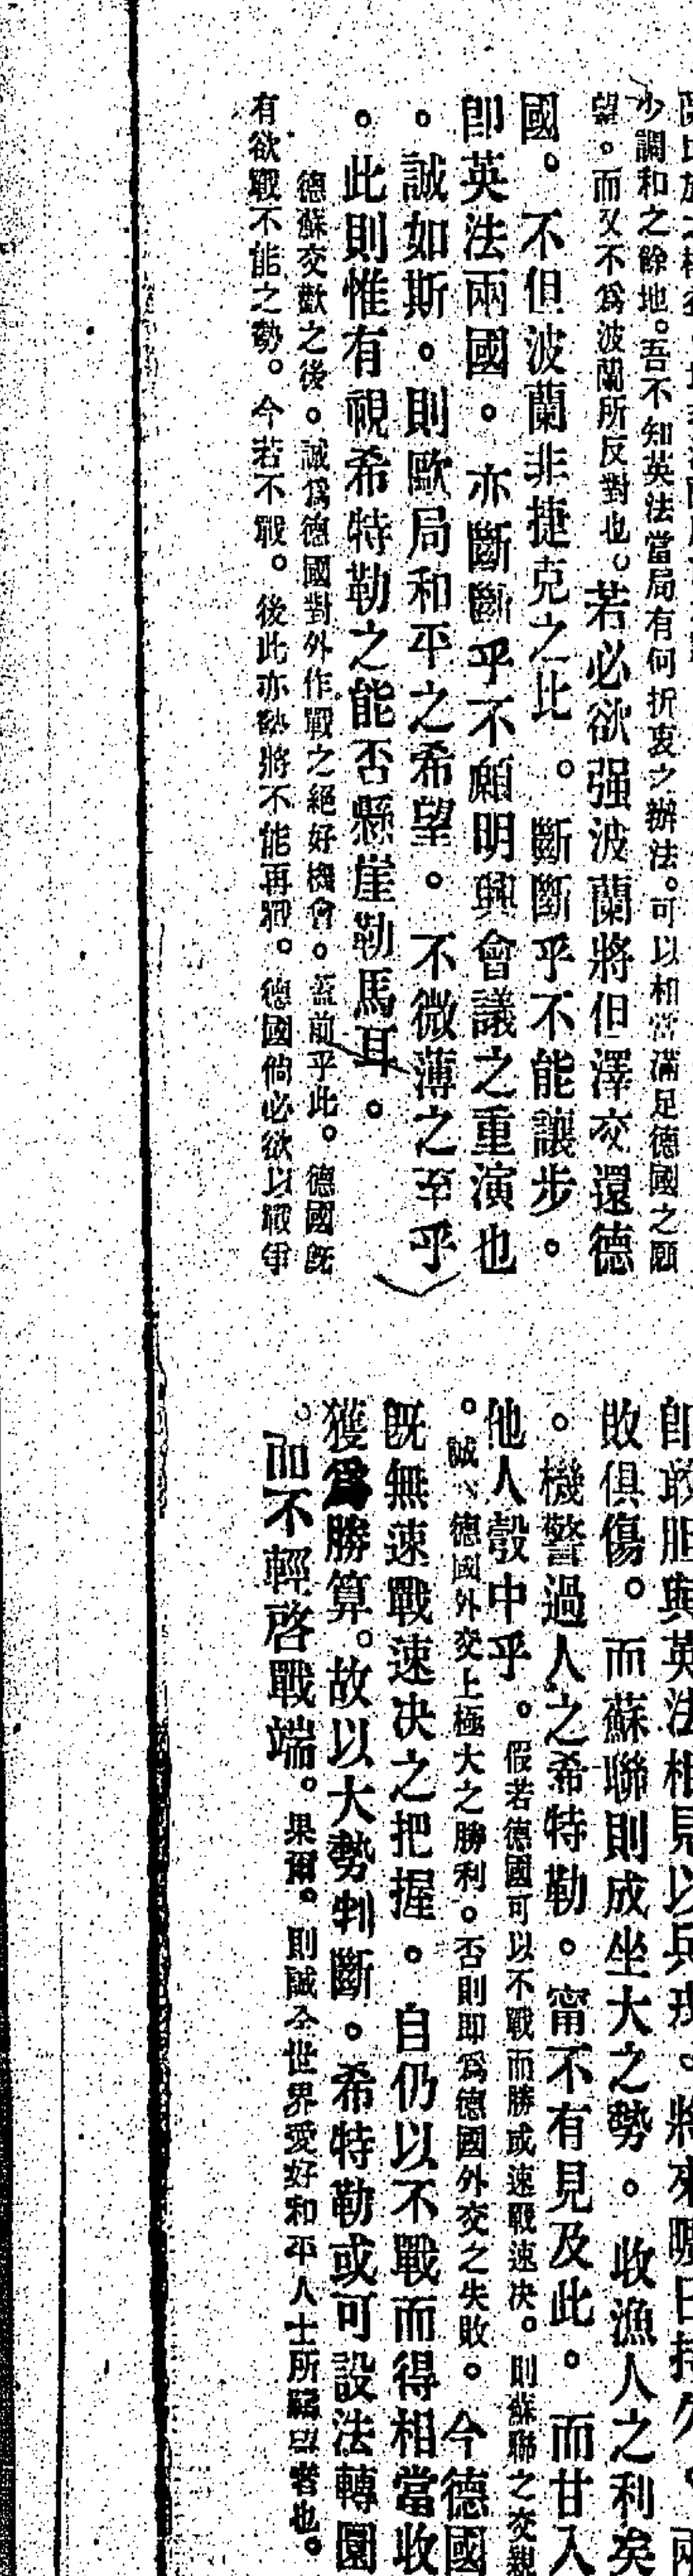 少調和之餘地。吾不知英法當局有何折衷之辦法。可以相當滿足德國之願
望。而又不爲波蘭所反對也。若必欲强波蘭將但澤交還德
國。不但波蘭非捷克之比。斷斷乎不能讓步。
卽英法兩國。亦斷斷乎不願明興會議之重演也
。誠如斯。則歐局和平之希望。不微薄之至乎
。此則惟有視希特勒之能否懸崖勒馬耳。
德蘇交歡之後。誠爲德國對外作戰之絕好機會。蓋前乎此。德國旣
有欲戰不能之勢。今若不戰。後此亦勢將不能再戰。德國倘必欲以戰爭
卽敢胆與英法相見以兵戎。將來曠日持久。兩
敗俱傷。而蘇聯則成坐大之勢。收漁人之利矣
。機警過人之希特勒。甯不有見及此。而甘入
他人彀中乎。假若德國可以不戰而勝或速戰速决。則蘇聯之交親
。誠、德國外交上極大之勝利。否則即爲德國外交之失敗。今德國
旣無速戰速决之把握。自仍以不戰而得相當收
獲爲勝算。故以大勢判斷。希特勒或可設法轉圜
。而不輕啓戰端。果爾。則誠全世界愛好和平人士所望者也。